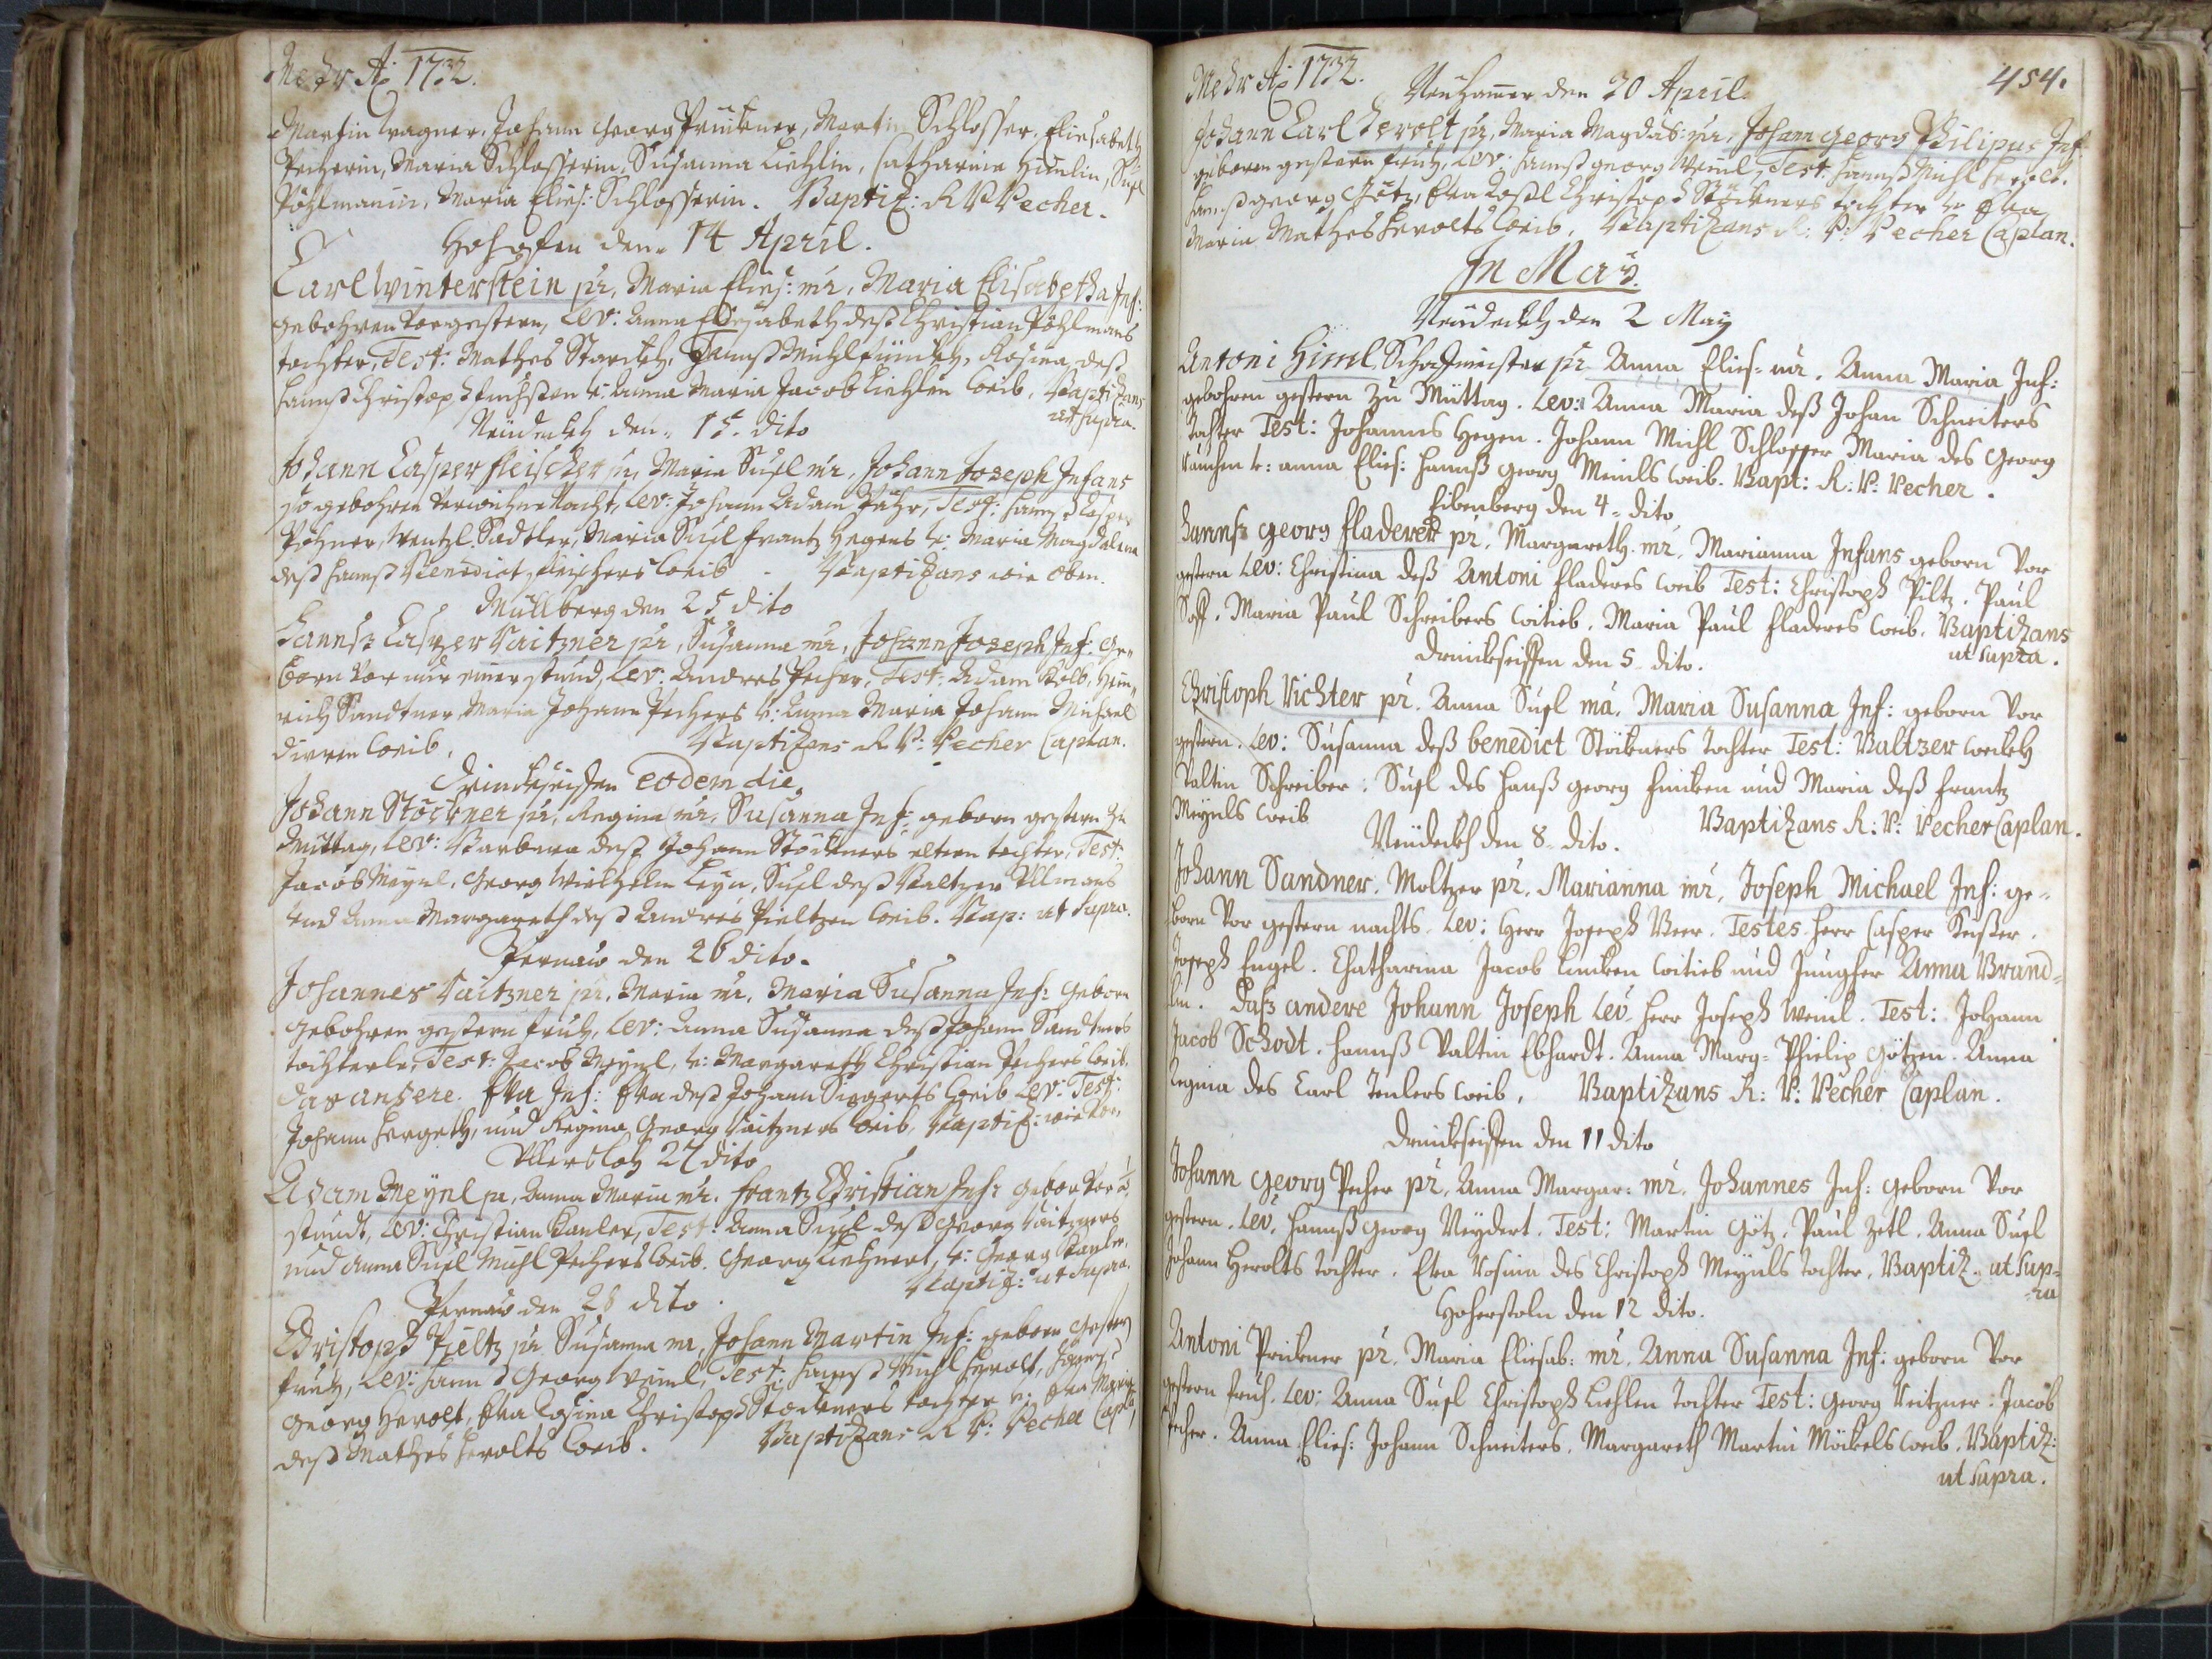 Mehr Aõ 1732.
Martin Wagner. Johann Georg Prückner, Martin Schlosser. Eliesabeth
Pecherin, Maria Schlosserin, Susanna Liehlin, Catharina Himlin, Susl
Pöhlmanin, Maria Elies: Schlosserin. Baptiz: R P Pecher.
Hohofen den 14 April.
Carl Winterstein pr, Maria Elies: mr, Maria Elisabetha Inf:
gebohren vorgestern, Lev: Anna Eliesabeth deß Christian Pöhlmans
tochter, Test: Mathes Starckh, Hannß Muhl, Rosina deß
Hannß Christoph v: Anna Maria Jacob Liehlen weib. Baptizans
ut supra.
Neudeckh den 15. dito
Johann Casper Fleischer pr, Maria Susl mr, Johann Joseph Infans
so gebohren Nacht, Lev: Johann Adam Test: Hannß Casper
Pöhner, Wentzl Sadtler, Maria Susl Frantz Hegens v: Maria Magdalena
deß Hannß Benedict Fleischers weib. Baptizans wie oben.
Müllberg den 25 dito
Hannß Casper Naitzner pr, Susanna mr, Johann Joseph Inf. ge-
born vor einer stund, Lev: Andres Pecher, Test: Adam Kolb, Hein-
rich Sandtner, Maria Johann Pechers v: Anna Maria Johann Michael
weib. Baptizans R P: Pecher Caplan.
Drinckseissen Eodem die
Johann Stöckner pr, Regina mr, Susanna Inf: geborn gestern zu
Müttag, Lev: Barbara deß Johann Stöckners eltern tochter, Test:
Jacob Meynl, Georg Wielhelm Susl deß Baltzer Ullmans
und Anna Margareth deß Andres Pieltzen weib. Bap: ut supra.
Pernau den 26 dito.
Johannes Naitzner pr, Maria mr, Maria Susanna Inf: geborn
gebohren gestern fruh, Lev: Anna Susanna deß Johann Sandtners
töchterle, Test: Jacob Meynl, v: Margareth Christian Pechers weib.
das andere. Eva Inf: Eva deß Johann Siegerts weib Lev. Test:
Johann Hergeth, und Regina Georg Naitzners weib, Baptiz: wie vor.
Ullersloh 27 dito
Adam Meynl pr, Anna Maria mr. Frantz Christian Inf: gebor vor
stundt, Lev: Christian Test: Anna Susl deß Georg Naitzners
und Anna Susl Muhl Pechers weib. Georg Liehnert, v: Georg
Baptiz: ut supra,
Pernau den 28 dito.
Christoph Pieltz pr Susanna mr, Johann Martin Inf: geborn gestern
fruh, Lev: Hannß Georg Weinl, Test: Hannß Michl Herolt,
Georg Herolt, Eva Rosina Christoph Stöckners tochter v: Eva Maria
deß Mathes Herolts weib. Baptizans R P: Pecher Capla
Mehr Aõ 1732.
454.
Neuhamer den 20 April.
Johann Carl Herolt pr, Maria Magda: mr, Johann Georg Philipus Inf.
geboren gestern fruh, Lev: Hannß Georg Weinl, Test: Hannß Michl Herolt.
Hannß Georg Götz, Eva Rosl Christoph Stöckners tochter v: Eva
Maria Mathes Herolts weib. Baptizans R: P: Pecher Caplan.
In Maÿ.
Neudeckh den 2 May
Antoni Himl Schosmeister pr Anna Elies: mr. Anna Maria Inf:
gebohren gestern zu Müttag. Lev: Anna Maria deß Johan Schneiters
Tochter Test: Johannes Hegen. Johann Michl Schlosser Maria des Georg
v: anna Elies: Hannß Georg Meinls weib. Bapt: R: P: Pecher.
Eibenberg den 4. dito
Hannß Georg Fladerer pr. Margareth mr. Marianna Infans geborn Vor
gestern Lev: Christina deß Antoni Fladeres weib Test: Christoph Piltz. Paul
Maria Paul Schreibers witieb. Maria Paul Fladeres weib. Baptizans
ut supra.
Drinckseissen den 5 dito.
Christoph Richter pr. Anna Susl ma. Maria Susanna Inf: geborn Vor
gestern. Lev: Susanna deß benedict Stöckners Tochter Test: Baltzer
Valtin Schreiber: Susl des Hanß Georg und Maria deß Frantz
Meynls weib Baptizans R: P: Pecher Caplan.
Neudeckh den 8. dito.
Johann Sandner. Moltzer pr. Marianna mr, Joseph Michael Inf: ge-
born Vor gestern nachts. Lev: Herr Joseph Beer. Testes. Herr Casper
Joseph Engel. Chatharina Jacob witieb und Jungfer Anna Brand-
lin. Daß andere Johann Joseph Lev. Herr Joseph Weinl. Test: Johann
Jacob Schodt. Hannß Valtin Ebhardt. Anna Marg: Phielip Götzen. Anna
Regina des Carl weib, Baptizans R: P: Pecher Caplan.
Drinckseissen den 11 dito
Johann Georg Pecher pr, Anna Margar: mr. Johannes Inf: geborn Vor
gestern. Lev. Hannß Georg Neydert. Test: Martin Götz. Paul Anna Susl
Johann Herolts tochter. Eva Rosina des Christoph Meynls tochter. Baptiz: ut sup-
ra
Hoherstoln den 12 dito.
Antoni Prückner pr. Maria Eliesab: mr. Anna Susanna Inf: geborn Vor
gestern fruh. Lev: Anna Susl Christoph Liehlen Tochter Test: Georg Neitzner: Jacob
Pecher. Anna Elies: Johann Schneiters. Margareth Martin Möckels weib. Baptiz:
ut supra.